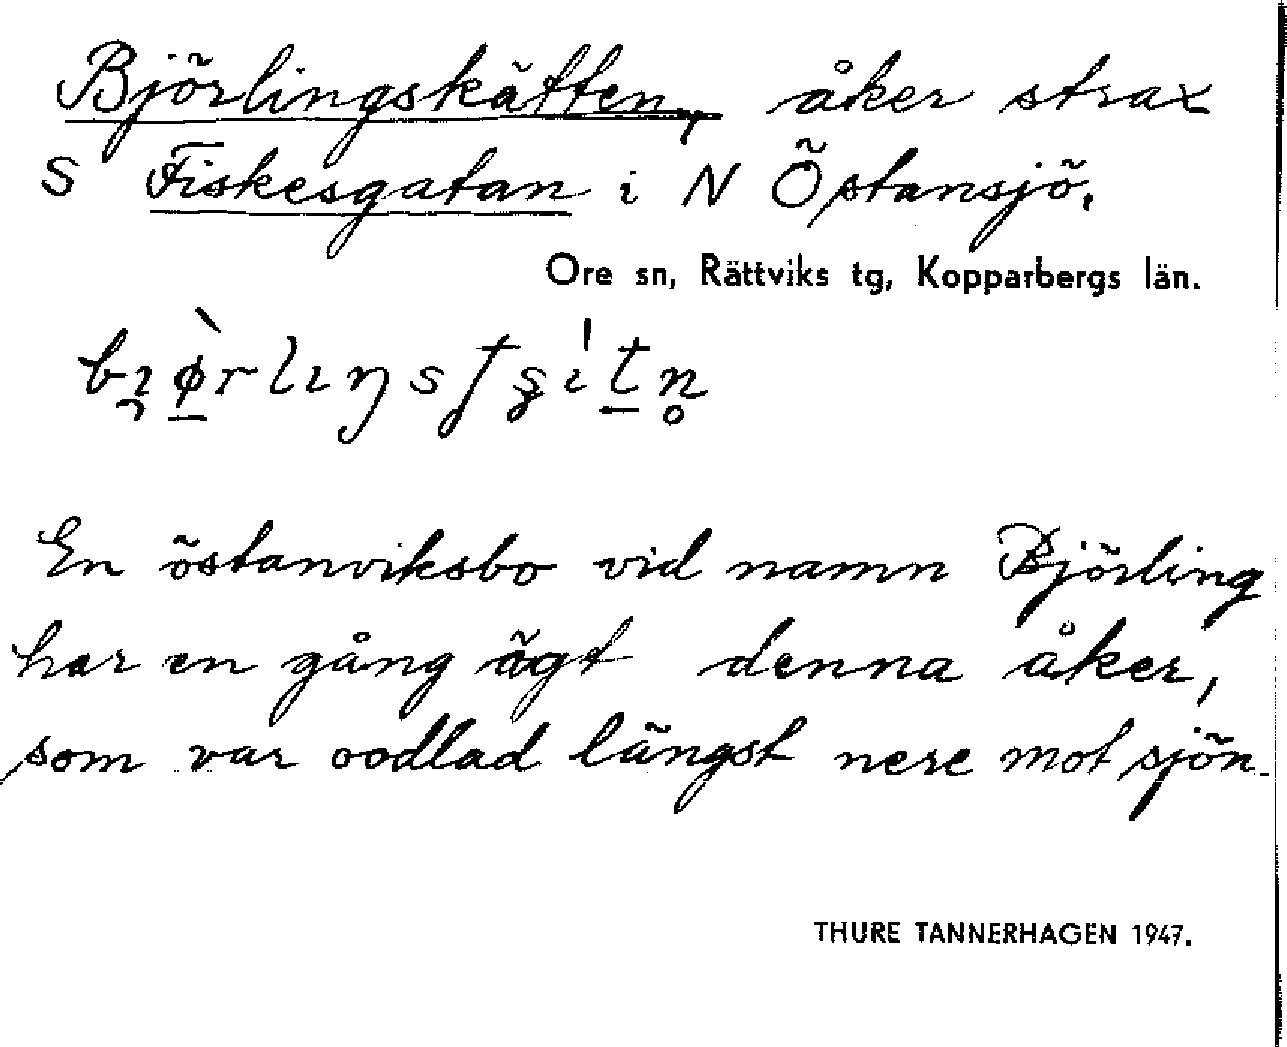 Björlingskätten, åker strax
S Fiskesgatan i N Östansjö.
Ore sn, Rättviks tg, Kopparbergs län.
En östanviksbo vid namn Björling
har en gång ägt denna åker,
som var oodlad längst nere mot sjön.
THURE TANNERHAGEN 1947.